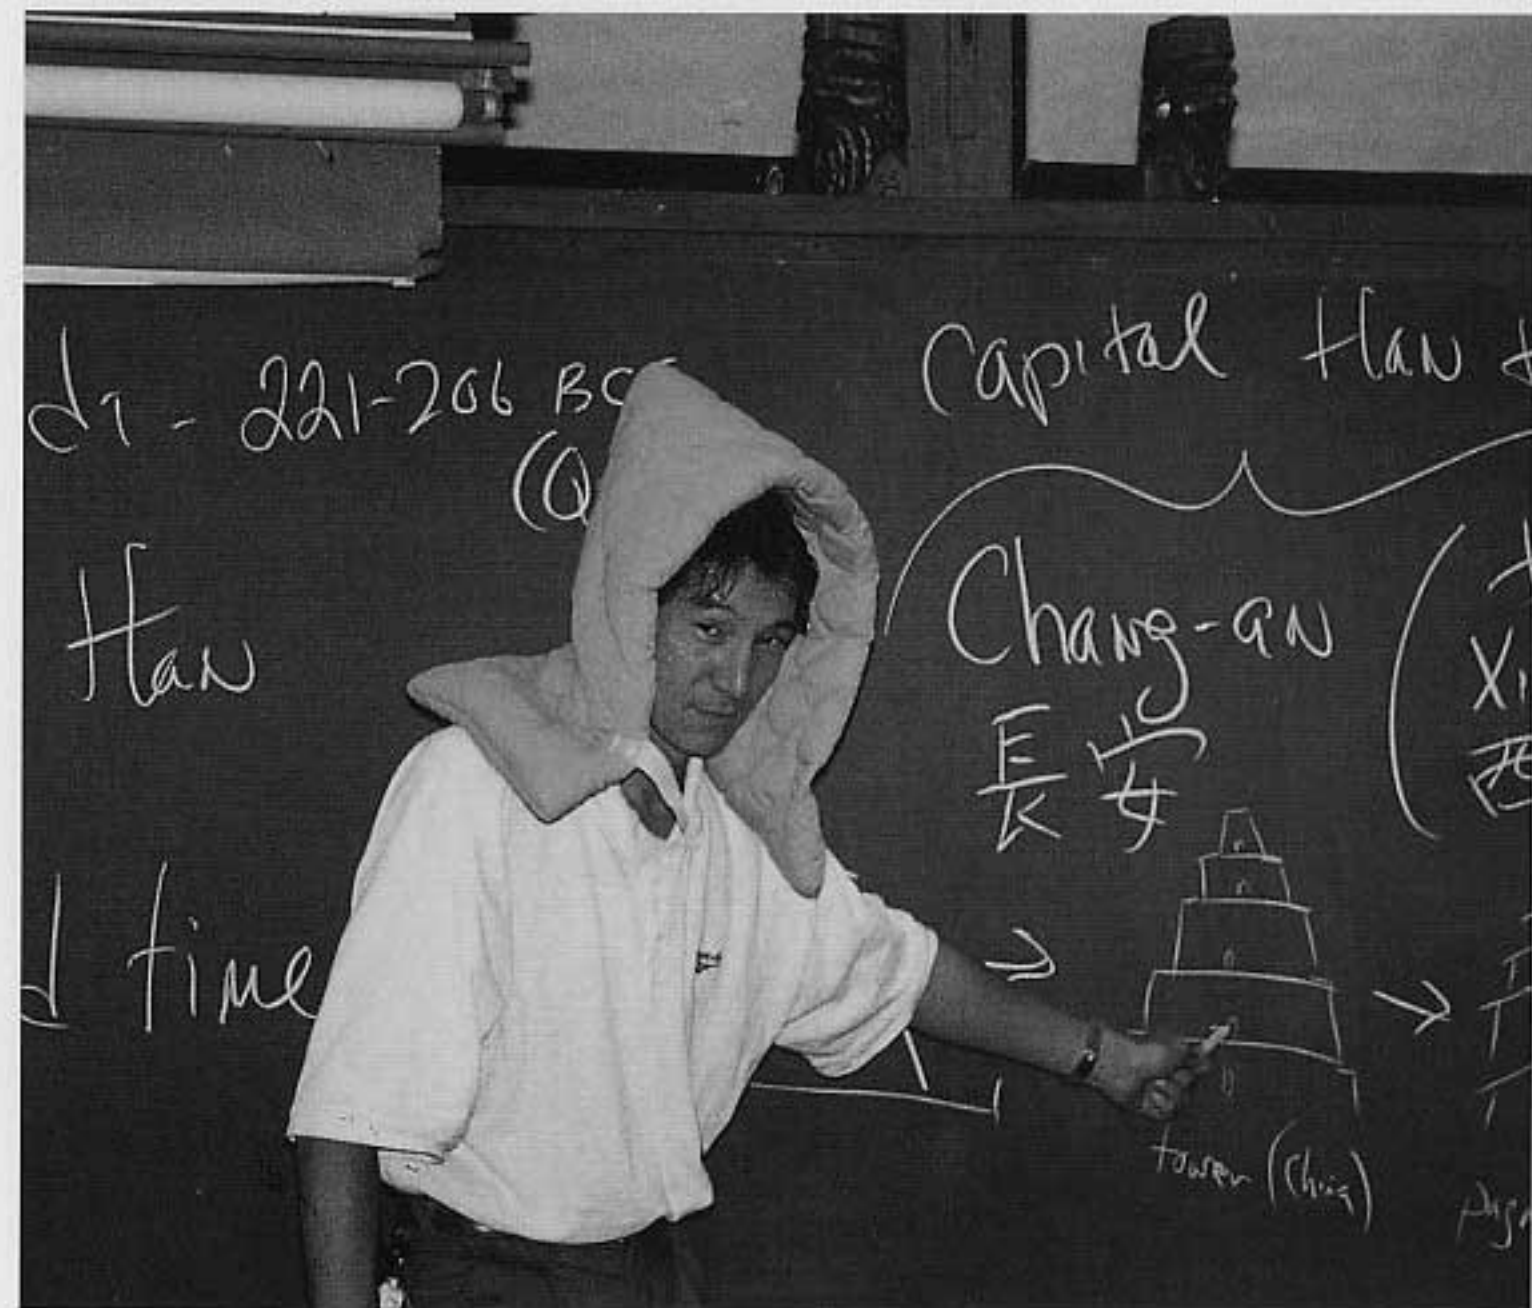 di - 221-206 BC
(Q
Capital Han
Han
Chang-an
長安
Xi
西
time
tower (China)